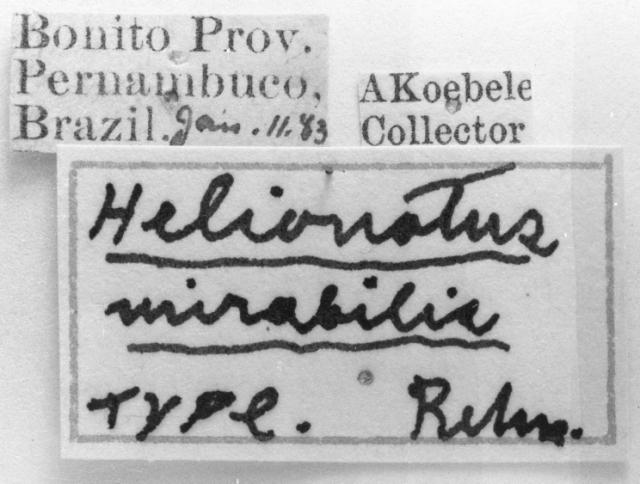 Bonito Prov.
Pernambuco,
Brazil. Jan. 11. 83
AKoebele
Collector
Helionotus
mirabilis
TYPE. Rehn.